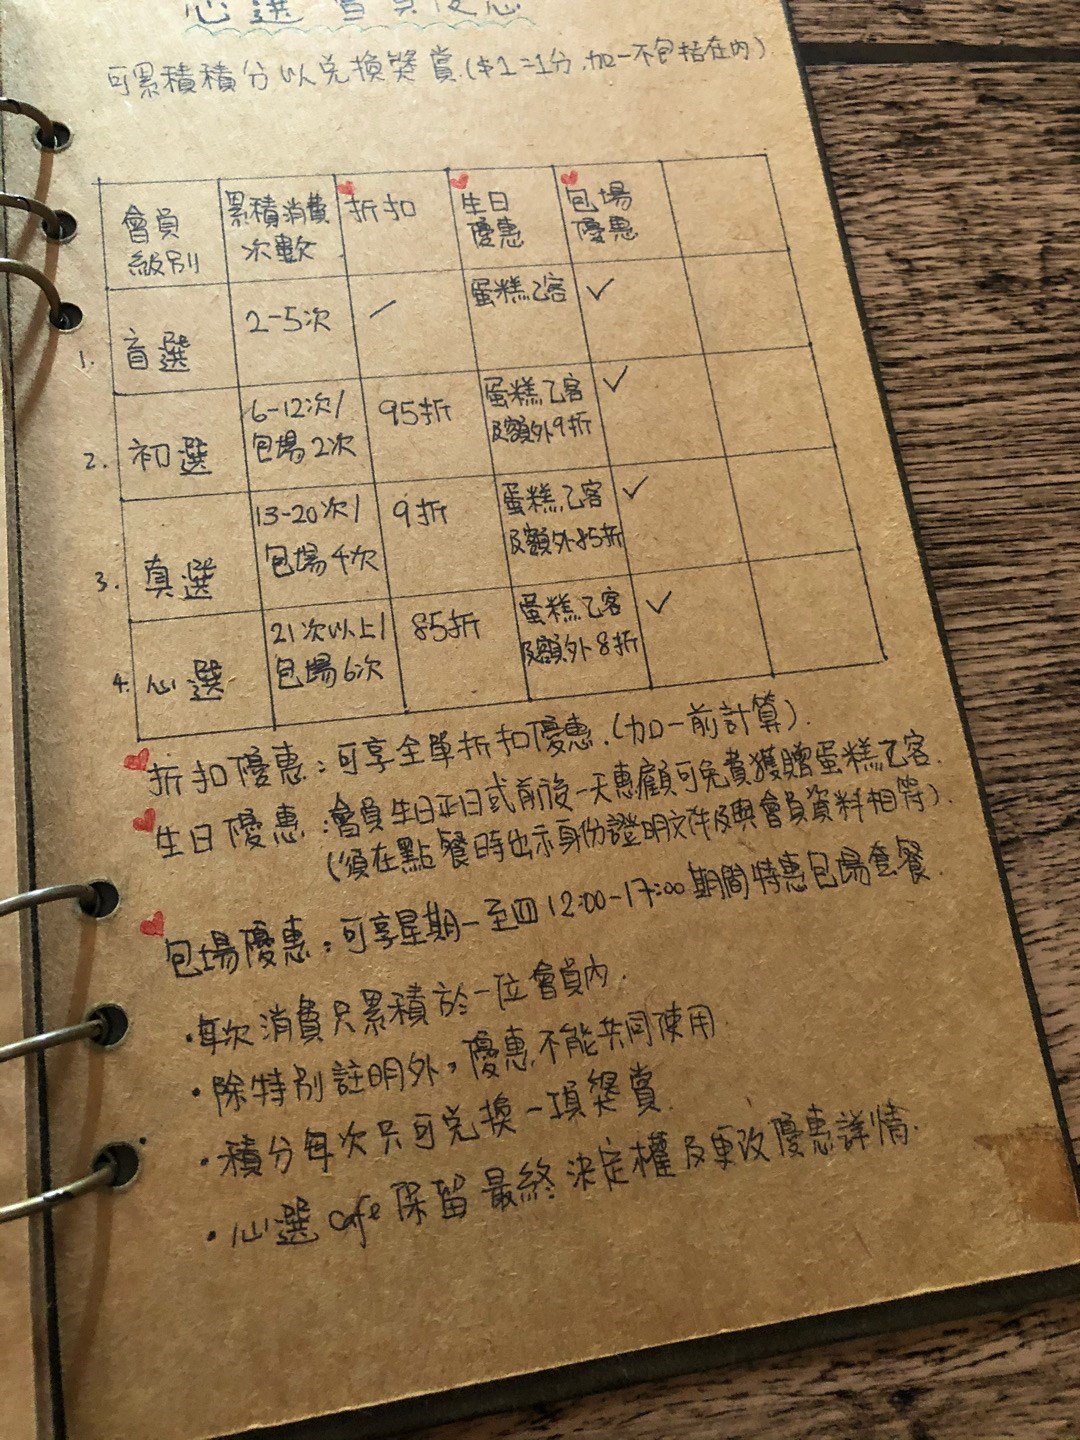 心選 會員優惠
可累積積分以兌換獎賞.($1=1分,加一不包括在內)
會員級別 累積消費次數 折扣 生日優惠 包場優惠
1. 盲選 2-5次 / 蛋糕乙客 ✓
2. 初選 6-12次/包場2次 95折 蛋糕乙客及額外9折 ✓
3. 真選 13-20次/包場4次 9折 蛋糕乙客及額外85折 ✓
4. 心選 21次以上/包場6次 85折 蛋糕乙客及額外8折 ✓
折扣優惠:可享全單折扣優惠.(加一前計算).
生日優惠:會員生日正日或前後一天惠顧可免費獲贈蛋糕乙客.
(須在點餐時出示身份證明文件及與會員資料相符).
包場優惠:可享星期一至四12:00-17:00期間特惠包場套餐.
·每次消費只累積於一位會員內.
·除特別註明外,優惠不能共同使用.
·積分每次只可兌換一項獎賞.
·心選cafe保留最終決定權及更改優惠詳情.